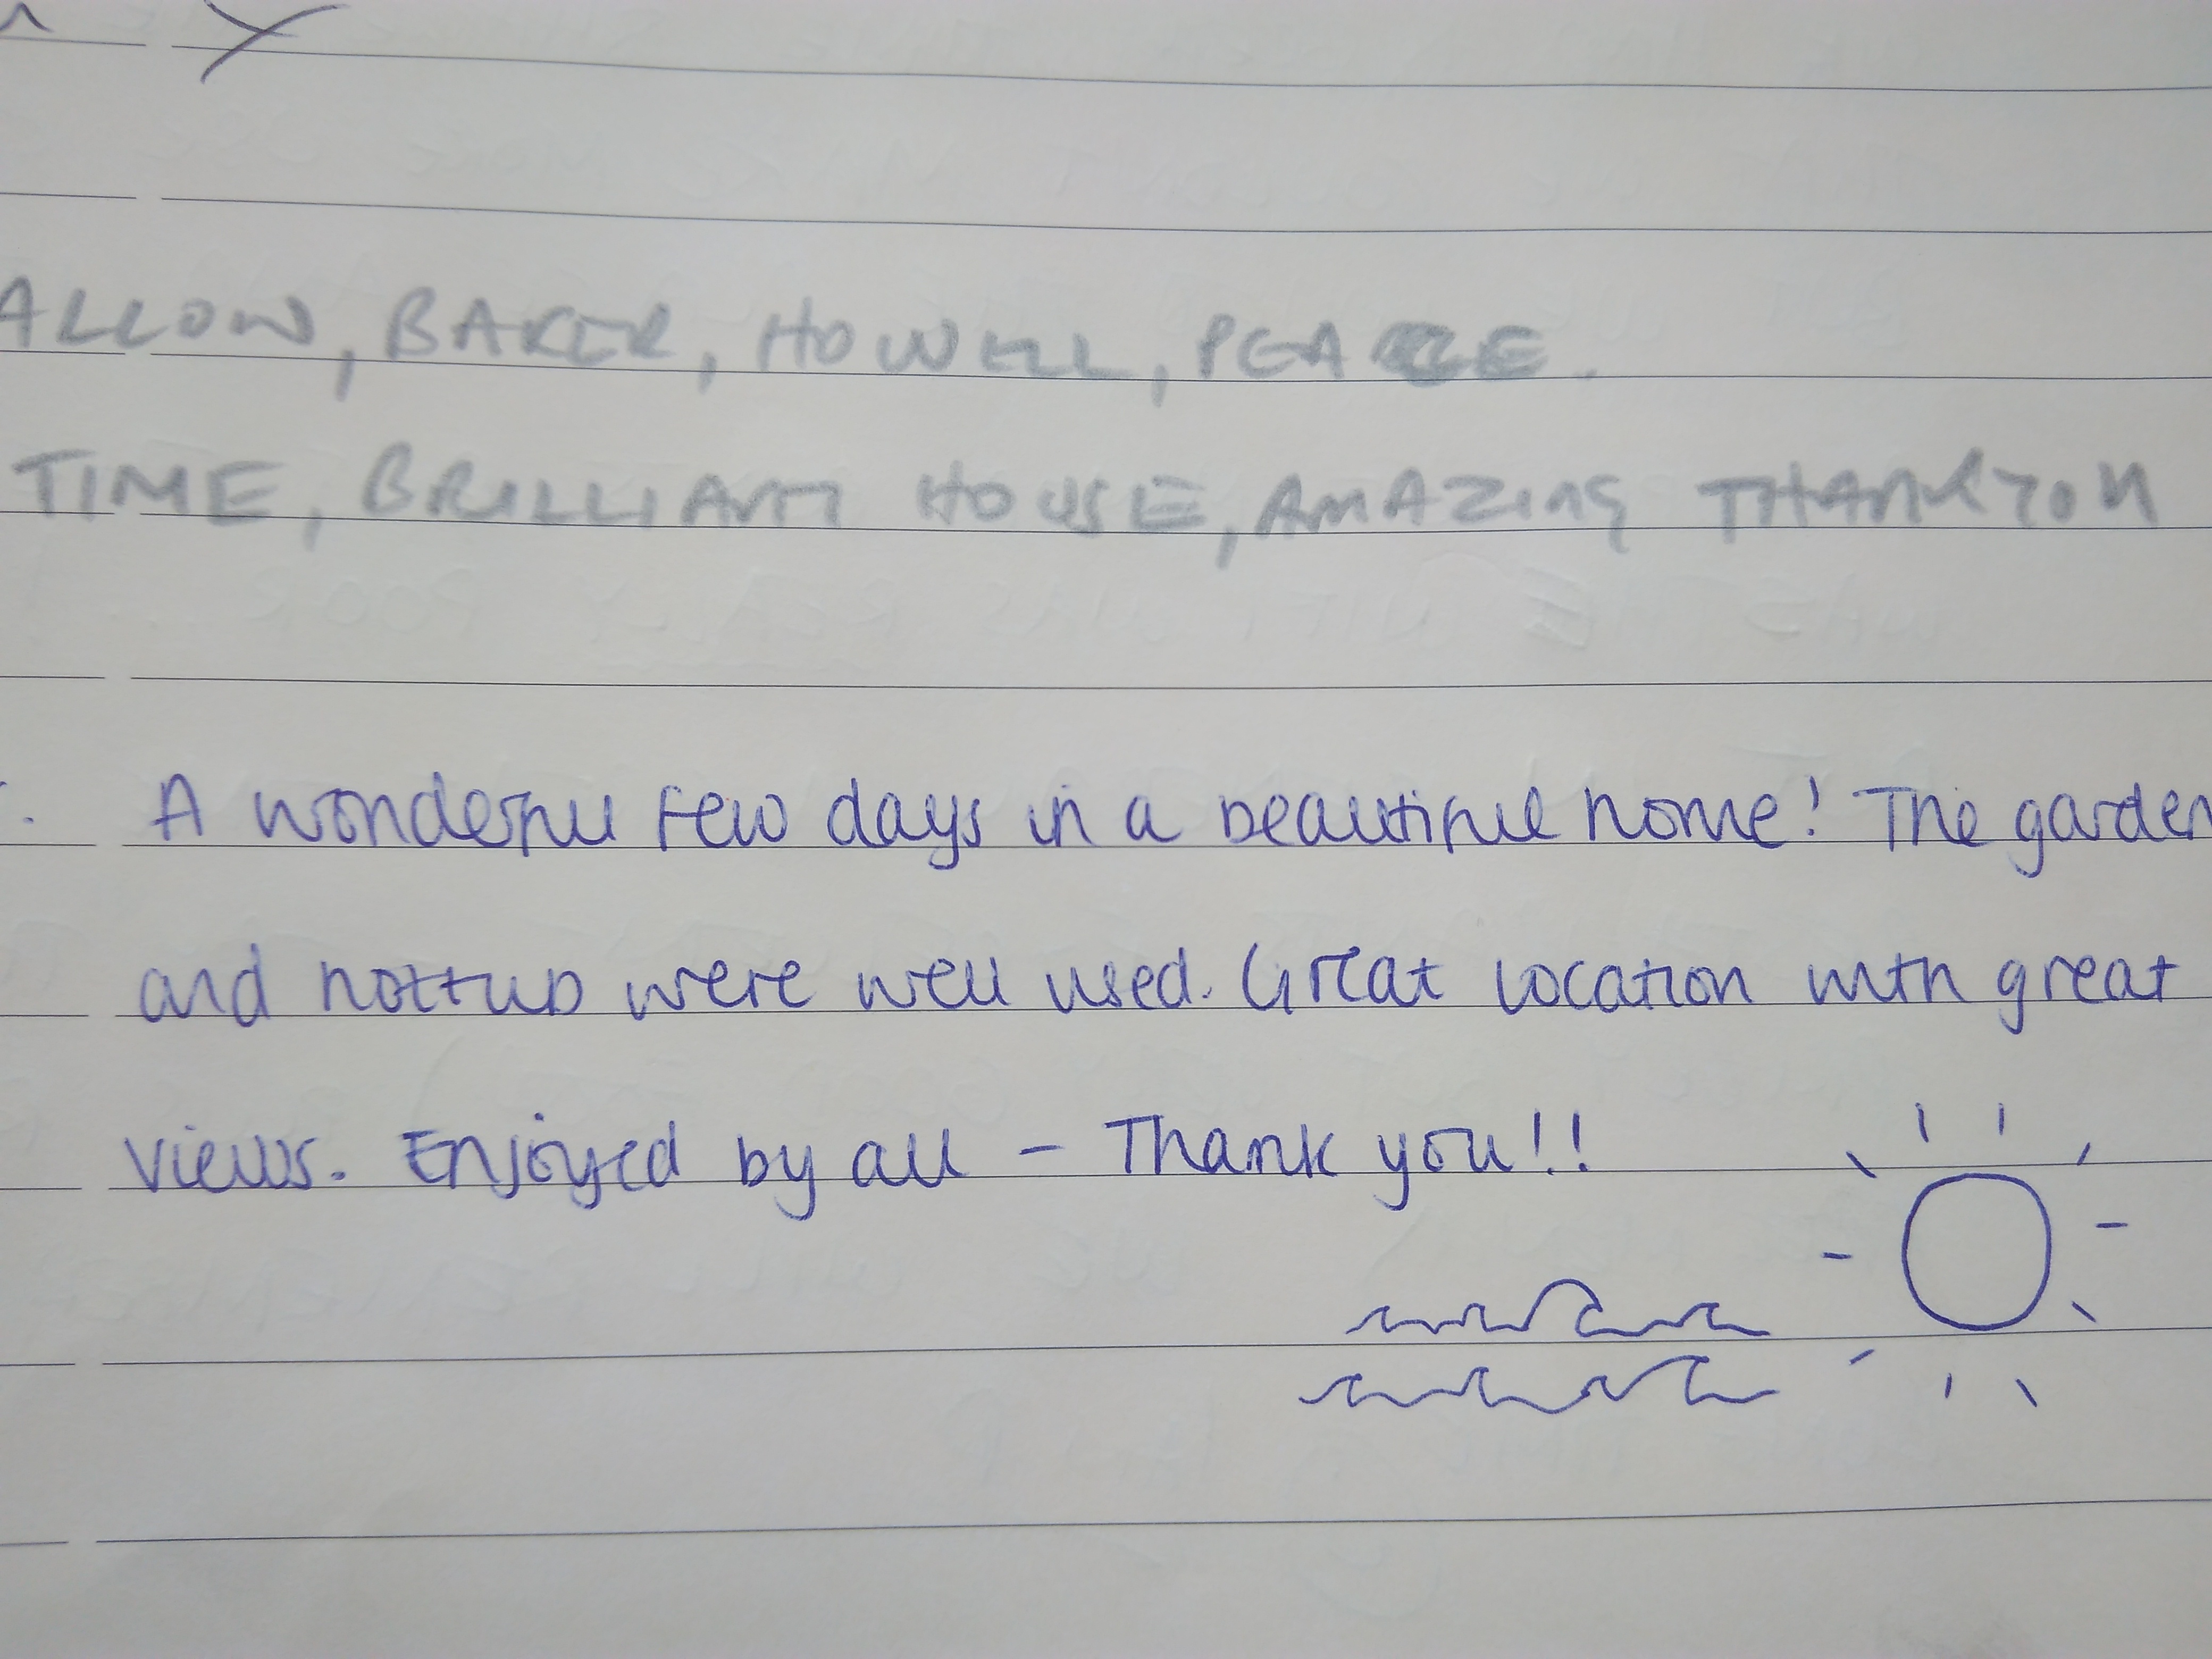 ALLOW, BAKER, HOWELL, PEACE.
TIME, BRILLIANT HOUSE, AMAZING THANKYOU
A wonderful few days in a beautiful home! The garden
and hottub were well used. Great location with great
views. Enjoyed by all – Thank you!!